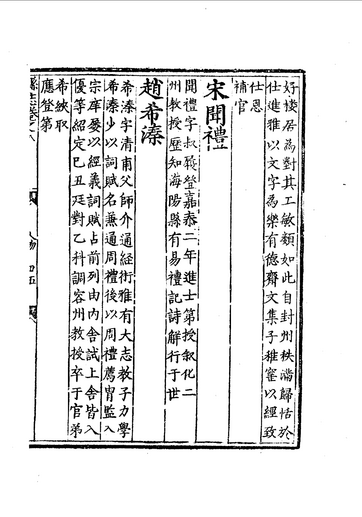 好棲居為對其工敏類如此自封州秩滿歸恬於
仕進雅以文字為樂有德齋文集子稚窒以經致
仕恩
補官
宋聞禮
聞禮字叔莪登嘉泰二年進士第授敘化二
州教授歷知海陽縣有易禮記詩解行于世
趙希溱
希溱字清甫父師介通經術雅有大志教子力學
希溱少以詞賦名兼通周禮後以周禮薦冑監入
宗庠屢以經義詞賦占前列由內舍試上舍皆入
優等紹定己丑廷對乙科調容州教授卒于官弟
希紻取
應登第
人物 四五